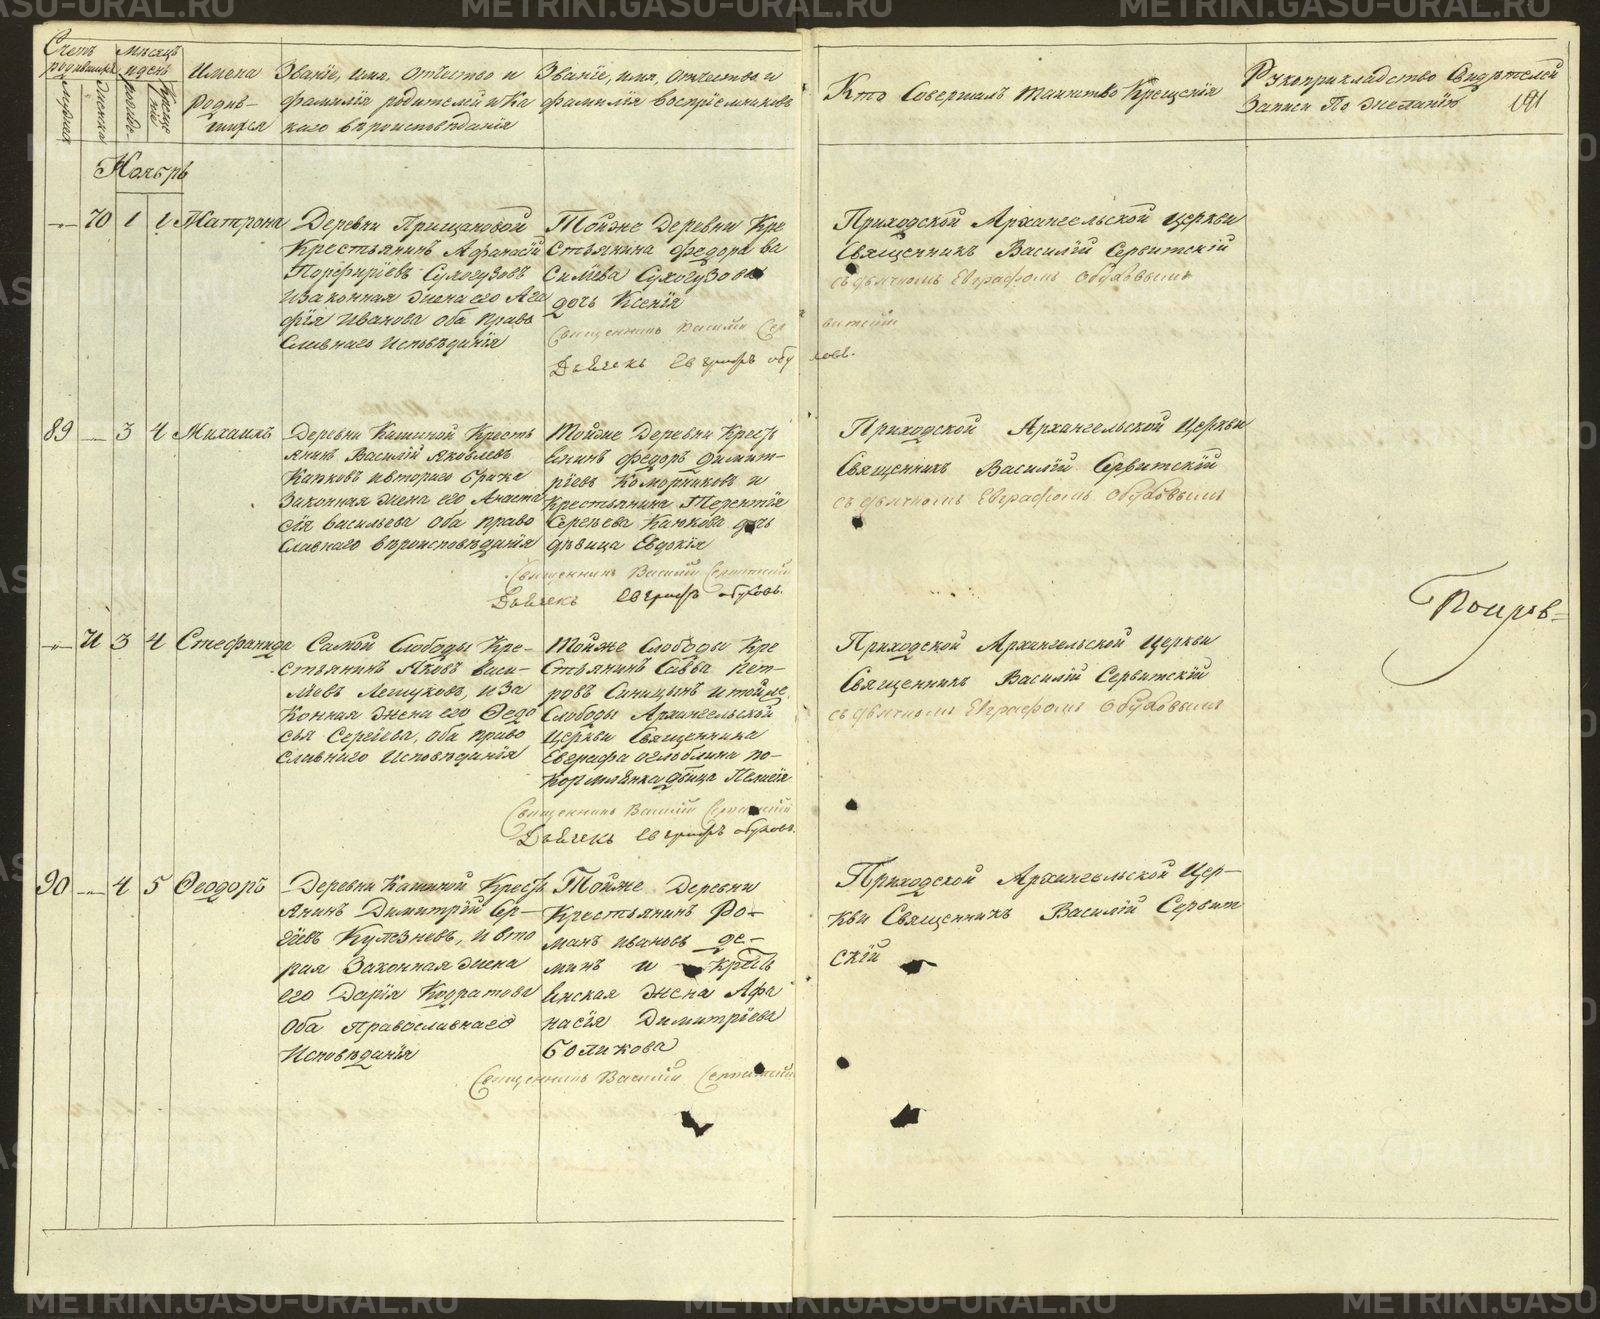 Счетъ родившихся
Мужска
Женска
Мѣсяцъ и день
рожде-
Креще
нія
Имена
родив-
шихся
Званіе, имя, отчество и
фамилія родителей и ка
каго вѣроисповѣданія
Званіе, имя, отчество и
фамилія воспріемниковъ
Кто Совершалъ таинство Крещенія
Рукоприкладство Свидѣтелей
Записи По желанію
191
Ноябрь
70 1 1 Матрона
Деревни Прищановой
Крестьянинъ Афанасій
Порфиріевъ Сухогузовъ
И законная жена его Ага
фія Иванова оба право
Славнаго Исповѣданія
Тойже Деревни Кре
Стьянина Федора Ва
Силіева Сухогузова
дочь Ксенія
Священникъ Василій Сервитскій
Дьячекъ Евграфъ Обуховъ.
Приходской Архангельской Церкви
Священникъ Василій Сервитскій
съ дьячкомъ Евграфомъ Обуховымъ
89 3 4 Михаилъ
Деревни Кашиной Кресть
янинъ Василій Яковлевъ
Капковъ и втораго брака
Законная жена его Анаста
сія Васильева Оба право
Славнаго вѣроисповѣданія
Тойже Деревни Кресть
янинъ Федоръ Димит-
ріевъ Коморниковъ и
Крестьянина Терентія
Сергѣева Капкова дочь
дѣвица Евдокія
Священникъ Василій Сервитскій
Дьячекъ Евграфъ Обуховъ.
Приходской Архангельской Церкви
Священникъ Василій Сервитскій
съ дьячкомъ Евграфомъ Обуховымъ
71 3 4 Стефанида
Самой Слободы Кре-
стьянинъ Яковъ Васи-
ліевъ Лещуковъ, и за
Конная жена его Федо
сья Сергіева, оба право
Славнаго Исповѣданія
Тойже Слободы Кре
Стьянинъ Савва Пет-
ровъ Синицынъ и тойже
Слободы Архангельской
Церкви Священника
Евграфа Оглоблина по-
Кормлянка дѣвица Пелагія
Священникъ Василій Сервитскій
Дьячекъ Евграфъ Обуховъ.
Приходской Архангельской Церкви
Священникъ Василій Сервитскій
съ дьячкомъ Евграфомъ Обуховымъ
90 4 5 Феодоръ
Деревни Кашиной Кресть
янинъ Димитрій Сер-
гіевъ Кулезневъ, и вто
рая Законная жена
его Дарія Кодратова
Оба Православнаго
Исповѣданія
Тойже Деревни
Крестьянинъ Ро-
манъ Ивановъ де-
минъ и Кресть
янская жена Афа
насія Димитріева
Боликова
Священникъ Василій Сервитскій
Приходской Архангельской Цер-
кви Священникъ Василій Сервит
скій
METRIKI.GASU-URAL.RU